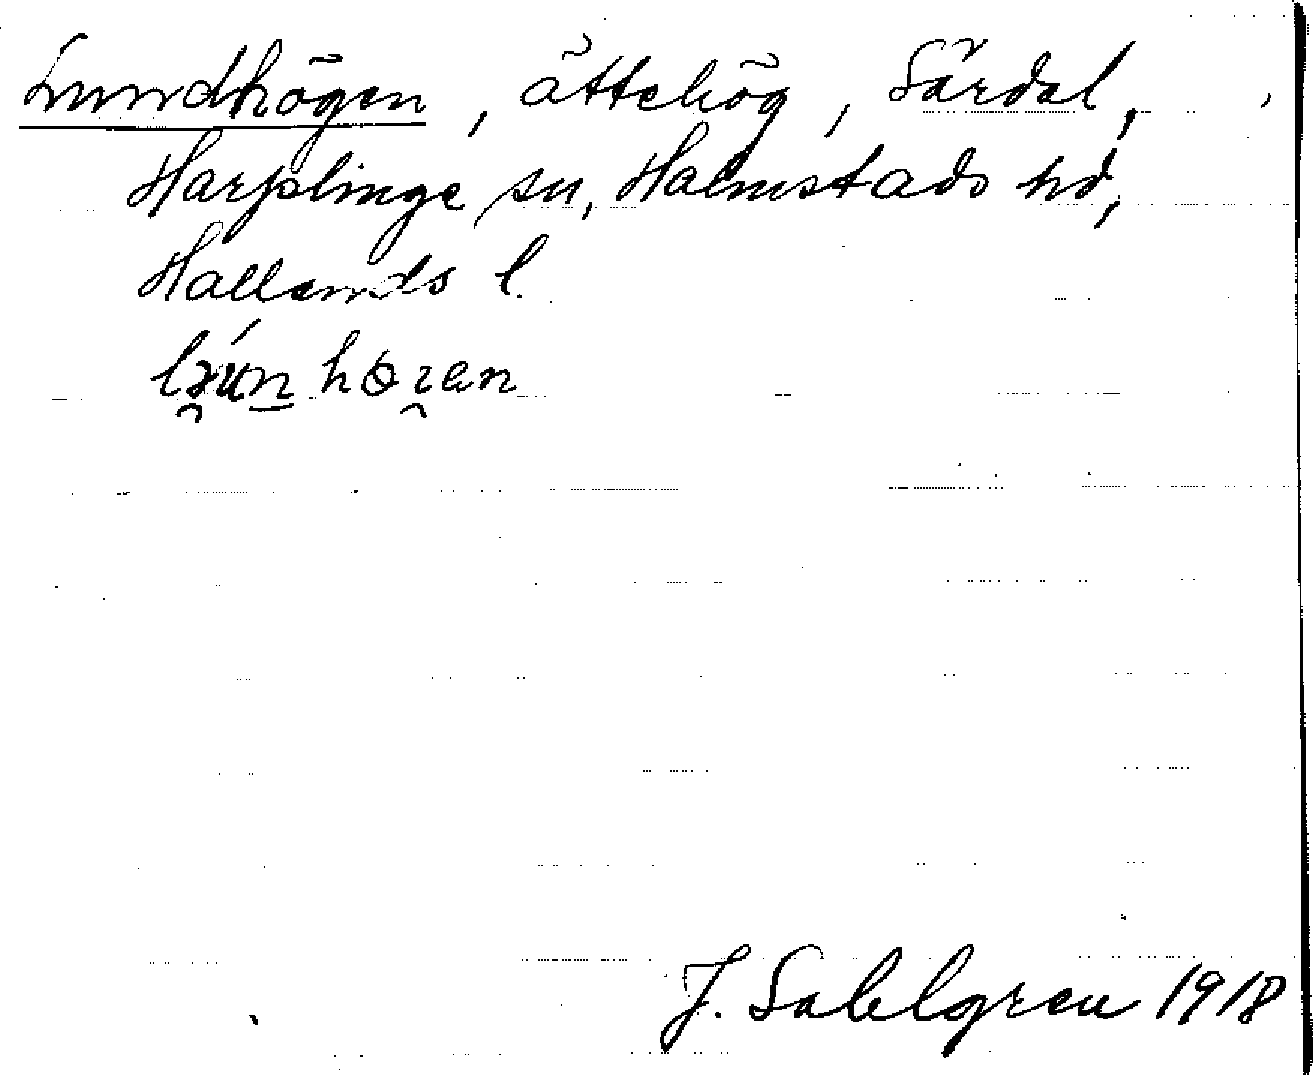 Lundhögen, ättehög, Särdal,
Harplinge sn, Halmstads hd,
Hallands l.
J. Sahlgren 1918